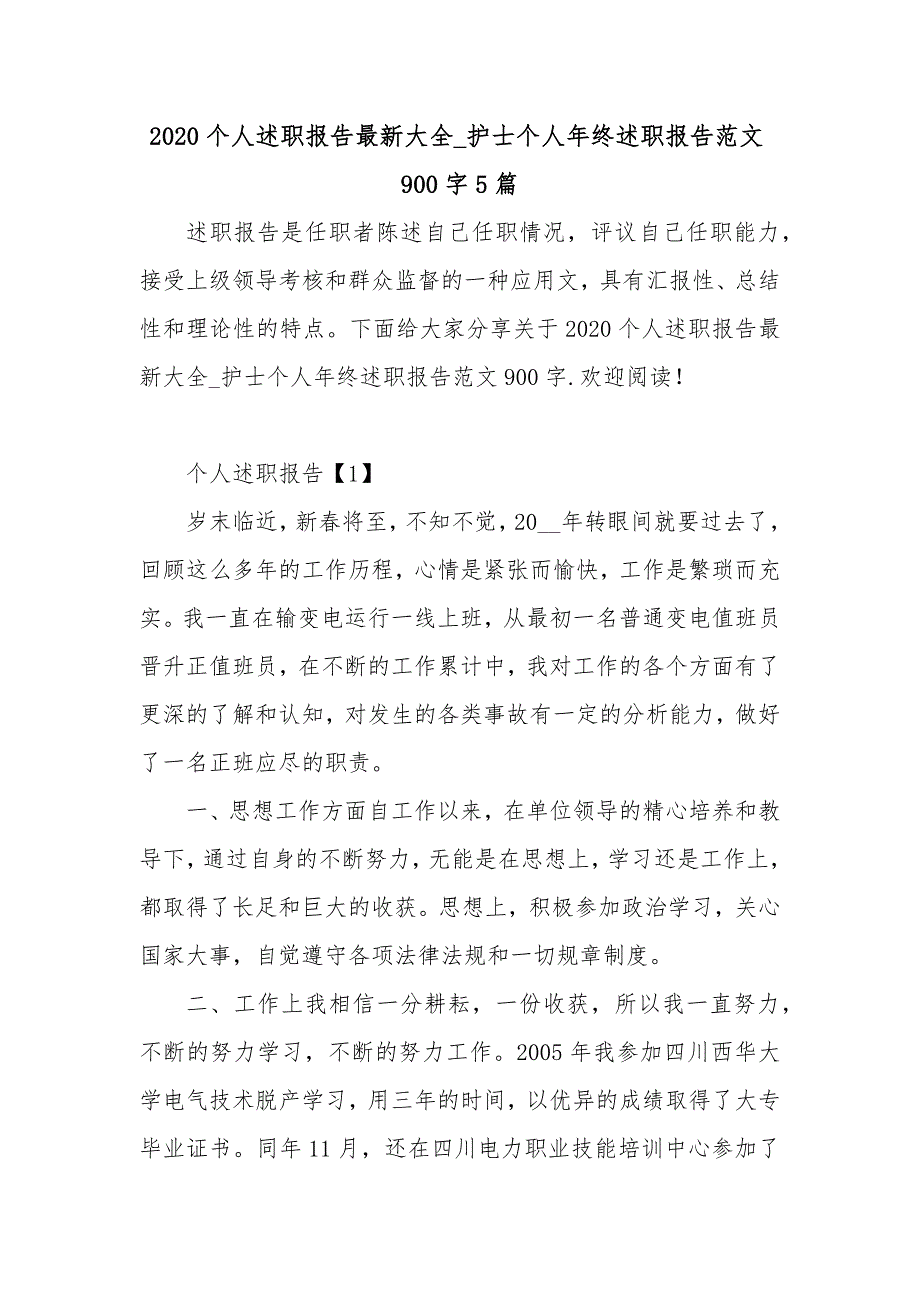 2020 个人述职报告最新大全_护士个人年终述职报告范文
900 字 5 篇
述职报告是任职者陈述自己任职情况，评议自己任职能力，
接受上级领导考核和群众监督的一种应用文，具有汇报性、总结
性和理论性的特点。下面给大家分享关于 2020 个人述职报告最
新大全_护士个人年终述职报告范文 900 字.欢迎阅读！
个人述职报告【1】
岁末临近，新春将至，不知不觉，20__年转眼间就要过去了，
回顾这么多年的工作历程，心情是紧张而愉快，工作是繁琐而充
实。我一直在输变电运行一线上班，从最初一名普通变电值班员
晋升正值班员，在不断的工作累计中，我对工作的各个方面有了
更深的了解和认知，对发生的各类事故有一定的分析能力，做好
了一名正班应尽的职责。
一、思想工作方面自工作以来，在单位领导的精心培养和教
导下，通过自身的不断努力，无能是在思想上，学习还是工作上，
都取得了长足和巨大的收获。思想上，积极参加政治学习，关心
国家大事，自觉遵守各项法律法规和一切规章制度。
二、工作上我相信一分耕耘，一份收获，所以我一直努力，
不断的努力学习，不断的努力工作。2005 年我参加四川西华大
学电气技术脱产学习，用三年的时间，以优异的成绩取得了大专
毕业证书。同年 11 月，还在四川电力职业技能培训中心参加了